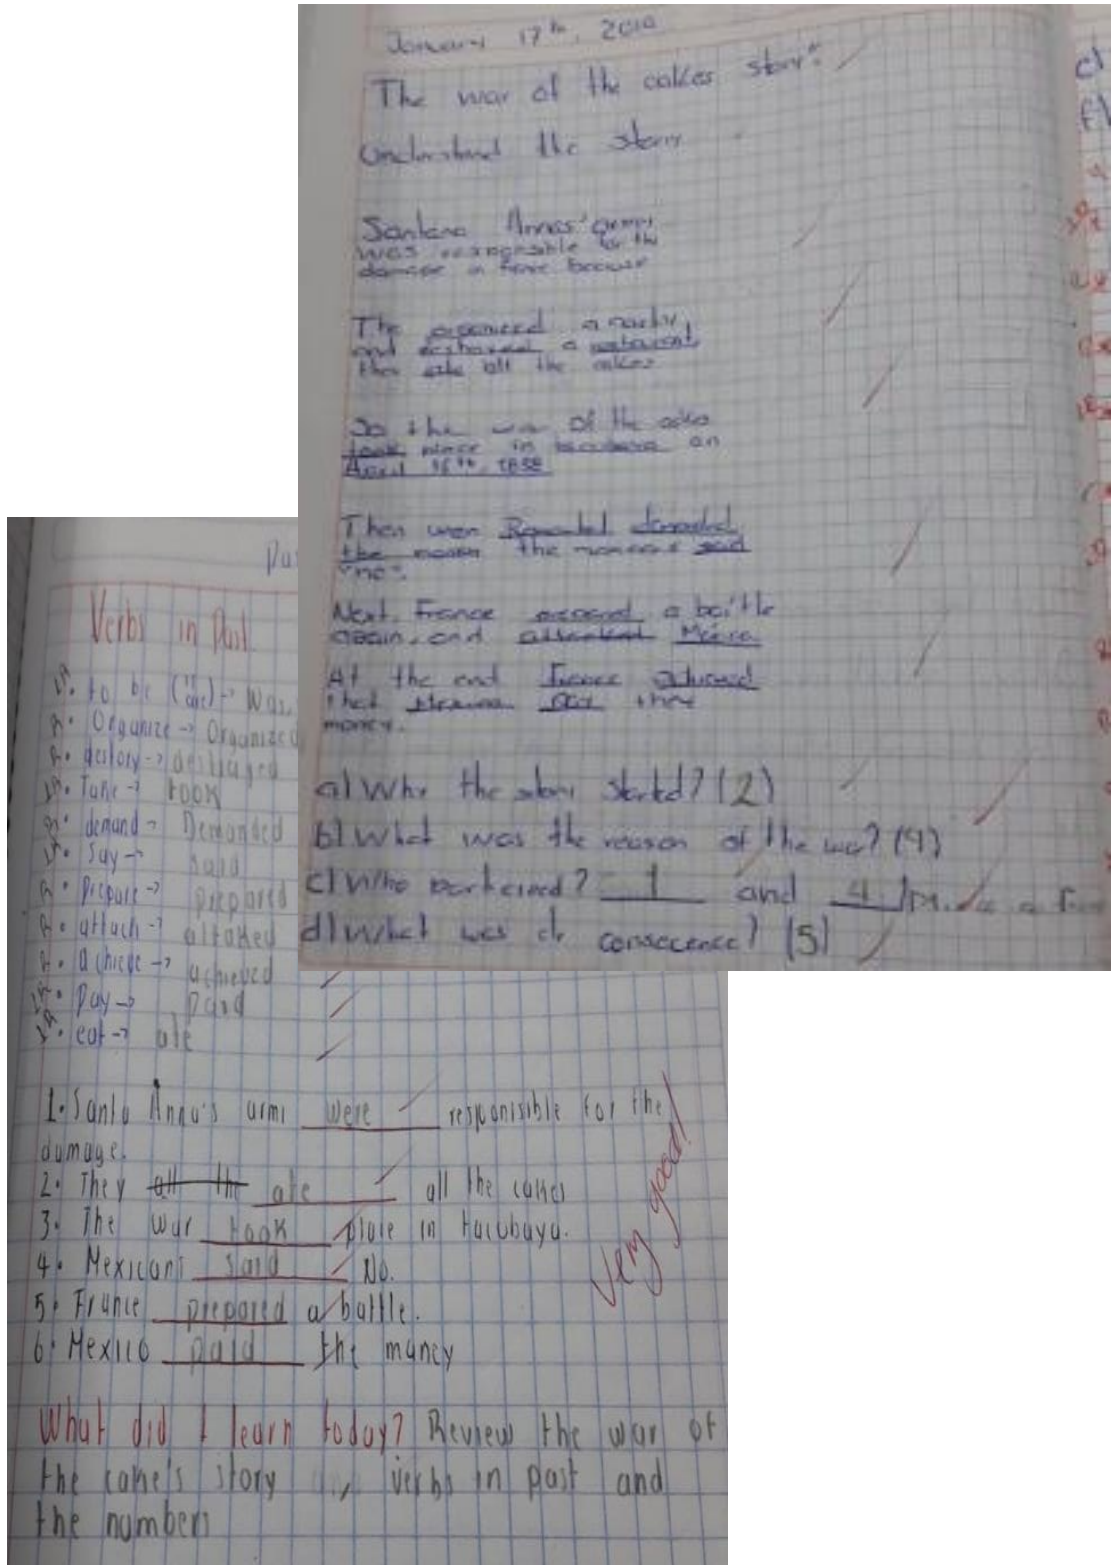 January 17th, 2010
The war of the cakes story"
Understand the story
Santana Annas' army
was responsible for the
damage in because
The organized a party
and destroyed a restaurant
they ate all the cakes
So the war of the cakes
took place in tacubaya on
April 16th, 1838
Then demanded
the money the mexicans said
"no".
Next, France prepared a battle
again, and attacked Mexico
At the end France achieved
that pay they
money.
a) Why the story started? (2)
b) What was the reason of the war? (4)
c) Who ? 1 and 4
d) What was (5)
Verbs in Past
to be (is are) -> was,
Organize -> Organized
destory -> destroyed
Take -> took
demand -> Demanded
Say -> said
Prepare -> prepared
attach -> attaked
achieve -> achieved
Pay -> paid
eat -> ate
1. Santa Anna's armi were responisible for the
damage.
2. They ate all the cakes
3. The war took place in tacubaya.
4. Mexicans said No.
5. France prepared a battle.
6. Mexico paid the money
Very good!
What did I learn today? Review the war of
the cake's story verbs in past and
the numbers